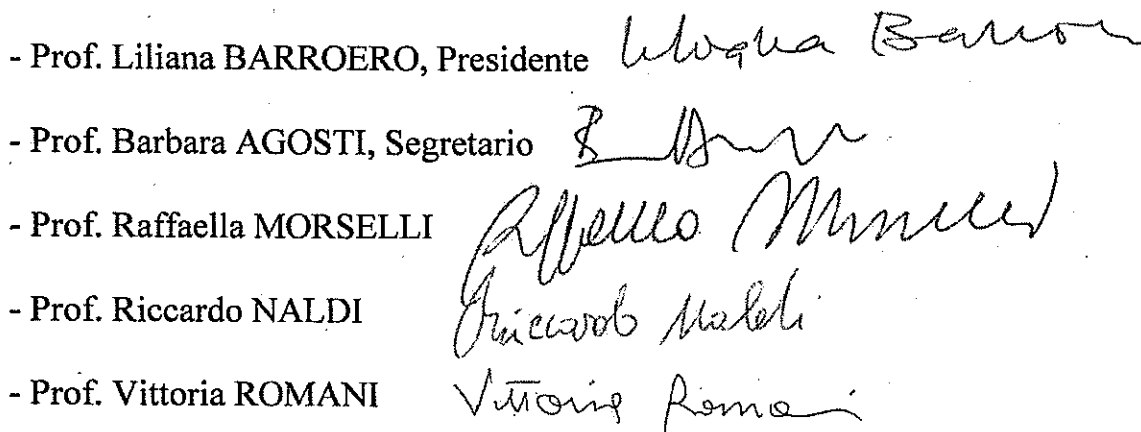 - Prof. Liliana BARROERO, Presidente Liliana Barroero
- Prof. Barbara AGOSTI, Segretario
- Prof. Raffaella MORSELLI Raffaella Morselli
- Prof. Riccardo NALDI Riccardo Naldi
- Prof. Vittoria ROMANI Vittoria Romani